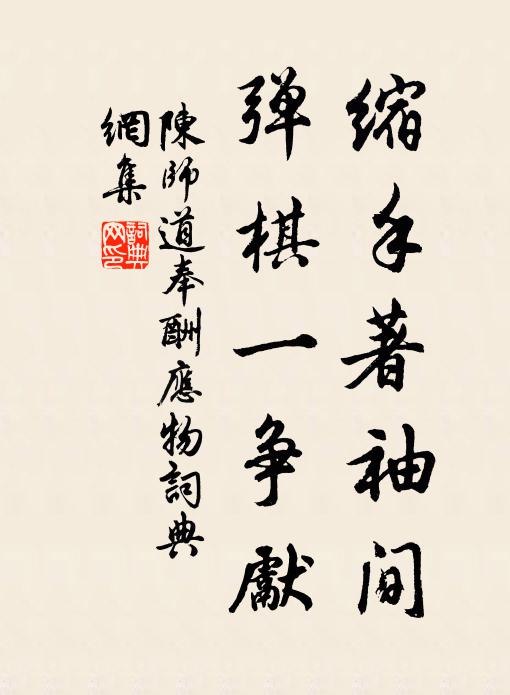 缩手著袖间
弹棋一争獻
陳師道奉酬應物詞典
網集
詞典網印